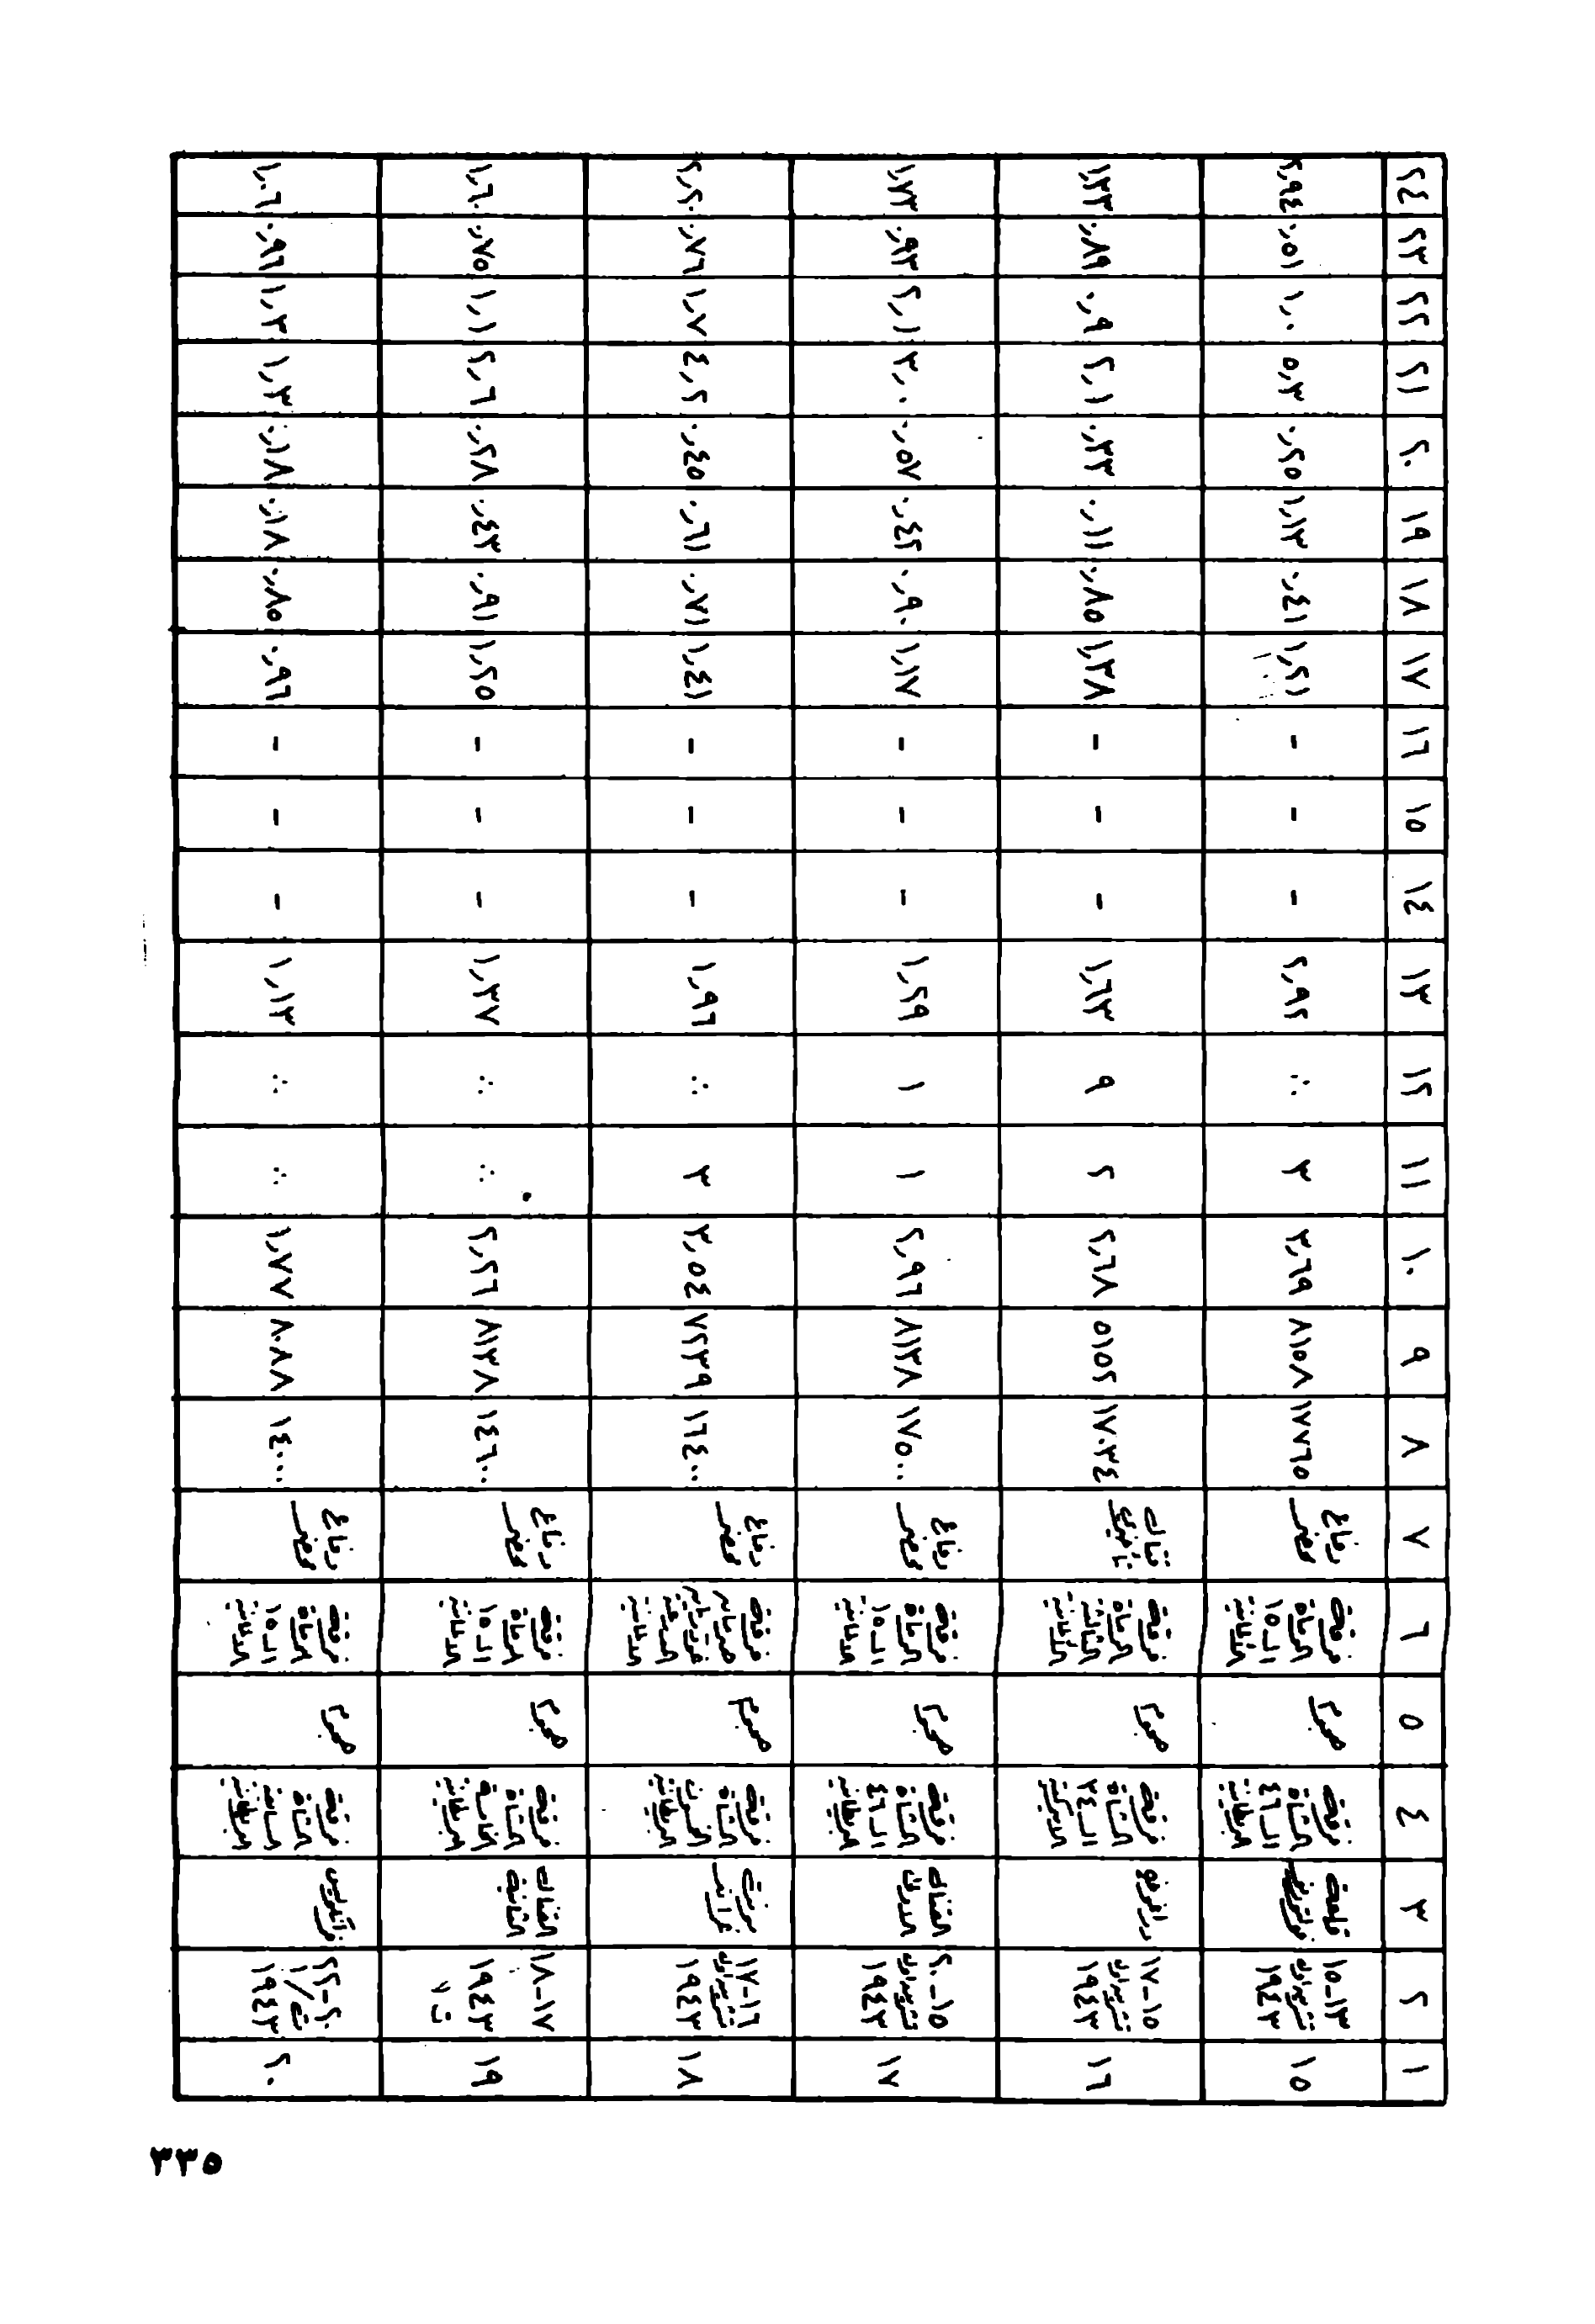 ١ ٢ ٣ ٤ ٥ ٦ ٧ ٨ ٩ ١٠ ١١ ١٢ ١٣ ١٤ ١٥ ١٦ ١٧ ١٨ ١٩ ٢٠ ٢١ ٢٢ ٢٣ ٢٤
١٥ ١٣-١٥ تشرين اول ١٩٤٣ قلعة فولتورنو فرقة المشاة الـ٤٦ البريطانية هجوم فرقة الرماة الـ١٥ الالمانية دفاع محضر ١٧٧٦٥ ٨١٥٨ ٣,٦٩ ٣ ∴ ٢,٩٢ - - - ١,٢١ ٠,٤١ ١,١٣ ٠,٢٥ ٥,٣ ١,٠ ٠,٥١ ٢,٩٤
١٦ ١٥-١٧ تشرين اول ١٩٤٣ دراغونو فرقة المشاة الـ٣٤ الاميركية هجوم فرقة الرماة الثالثة الالمانية قتال تأخيري ١٧٠٣٤ ٥١٥٢ ٢,٦٨ ٢ ٩ ١,٦٣ - - - ١,٣٨ ٠,٨٥ ٠,١١ ٠,٣٣ ٢,١ ٠,٩ ٠,٨٩ ١,٣٣
١٧ ١٥-٢٠ تشرين اول ١٩٤٣ القنال الاول فرقة المشاة الـ٤٦ البريطانية هجوم فرقة الرماة الـ١٥ الالمانية دفاع محضر ١٧٥٠٠ ٨١٣٨ ٢,٩٦ ١ ١ ١,٢٩ - - - ١,١٧ ٠,٩٠ ٠,٤٢ ٠,٥٧ ٣,٠ ٢,١ ٠,٩٣ ١,٢٣
١٨ ١٦-١٧ تشرين اول ١٩٤٣ مونت غراند فرقة المشاة الخمسون البريطانية هجوم فرقة هيرمان غورينغ المدرعة الالمانية دفاع محضر ١٦٤٠٠ ٧٢٣٩ ٣,٥٤ ٣ ∴ ١,٩٦ - - - ١,٤١ ٠,٧١ ٠,٦١ ٠,٤٥ ٤,٢ ١,٧ ٠,٧٦ ٢,٢٠
١٩ ١٧-١٨ ت ١ ١٩٤٣ القنال الثانية فرقة المشاة الخامسة البريطانية هجوم فرقة الرماة الـ١٥ الالمانية دفاع محضر ١٤٦٠٠ ٨١٣٨ ٢,٢٦ ∴ ∴ ١,٣٧ - - - ١,٢٥ ٠,٩١ ٠,٤٣ ٠,٢٨ ٢,٦ ١,١ ٠,٧٥ ١,٦٠
٢٠ ٢٠-٢٢ ت/١ ١٩٤٣ فرانكوليس فرقة المشاة البريطانية هجوم فرقة الرماة الـ١٥ الالمانية دفاع محضر ١٤٠٠٠ ٨٠٨٨ ١,٧٧ ∴ ∴ ١,١٣ - - - ٠,٩٦ ٠,٨٥ ٠,١٨ ٠,١٨ ١,٣ ١,٣ ٠,٩٦ ١,٠٦
٣٣٥